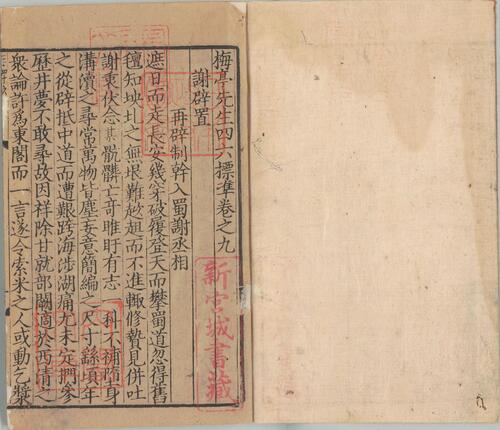 梅亭先生四六標準卷之九
謝辟置
再辟制幹入蜀謝丞相
遮日而走長安幾穿破履登天而攀蜀道忽得舊
氊知坱圠之無垠難趑趄而不進輙修贄見併吐
謝衷伏念某骯髒亡奇睢盱有志一科不補墮身
溝瀆之尋常萬物皆塵妄意簡編之尺寸繇頃年
之從辟抵中道而遭艱跨海涉湖痛尤未定捫參
歷井夢不敢尋故因祥除甘就部闕適於西清之
衆論許為東閣而一言遂令索米之人或動乞漿
新宮城書藏